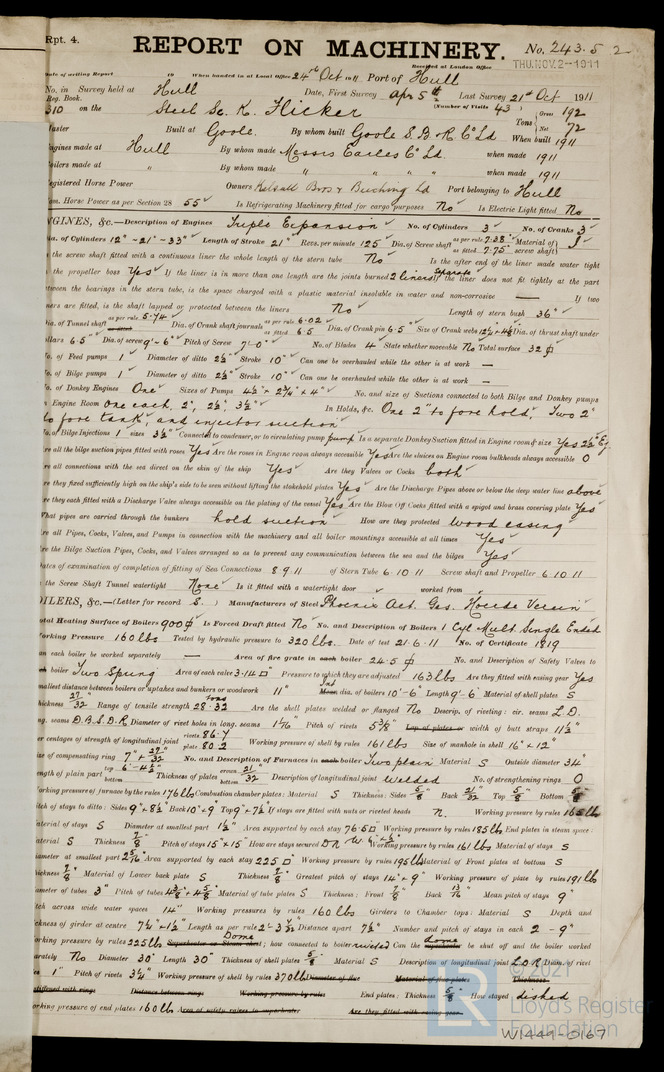 Rpt. 4.
REPORT ON MACHINERY.
No. 243.5 2
Received at London Office THU. NOV. 2 - 1911
Date of writing Report 19 When handed in at Local Office 24th Oct 1911 Port of Hull
No. in Survey held at Hull Date, First Survey Apr 5th Last Survey 21st Oct 1911
Reg. Book. (Number of Visits 43)
310 on the Steel Sc. K. Flicker Tons Gross 192 Net 72
Master Built at Goole By whom built Goole S. B. & R. Co Ld When built 1911
Engines made at Hull By whom made Messrs Earles Co Ld. when made 1911
Boilers made at " By whom made " " " when made 1911
Registered Horse Power Owners Kelsall Bros & Beeching Ld Port belonging to Hull
Nom. Horse Power as per Section 28 55 Is Refrigerating Machinery fitted for cargo purposes No Is Electric Light fitted No
ENGINES, &c.—Description of Engines Triple Expansion No. of Cylinders 3 No. of Cranks 3
Dia. of Cylinders 12"-21"-33" Length of Stroke 21" Revs. per minute 125 Dia. of Screw shaft as per rule 7.38" as fitted 7.75" Material of screw shaft I
Is the screw shaft fitted with a continuous liner the whole length of the stern tube No Is the after end of the liner made water tight
in the propeller boss Yes If the liner is in more than one length are the joints burned 2 liners Separate If the liner does not fit tightly at the part
between the bearings in the stern tube, is the space charged with a plastic material insoluble in water and non-corrosive — If two
liners are fitted, is the shaft lapped or protected between the liners No Length of stern bush 36"
Dia. of Tunnel shaft as per rule 5.74 Dia. of Crank shaft journals as per rule 6.02 as fitted 6.5 Dia. of Crank pin 6.5" Size of Crank webs 12¼ x 4½ Dia. of thrust shaft under
collars 6.5 Dia. of screw 9'-6" Pitch of Screw 7'-0" No. of Blades 4 State whether moveable No Total surface 32
No. of Feed pumps 1 Diameter of ditto 2½" Stroke 10" Can one be overhauled while the other is at work —
No. of Bilge pumps 1 Diameter of ditto 2½" Stroke 10" Can one be overhauled while the other is at work —
No. of Donkey Engines One Sizes of Pumps 4½" x 2¾" x 4" No. and size of Suctions connected to both Bilge and Donkey pumps
In Engine Room one each, 2", 2½", 3½" In Holds, &c. One 2" to fore hold, Two 2"
to fore tank, and injector suction
No. of Bilge Injections 1 sizes 3½" Connected to condenser, or to circulating pump pump Is a separate Donkey Suction fitted in Engine room & size Yes 2½" Ej.
Are all the bilge suction pipes fitted with roses Yes Are the roses in Engine room always accessible Yes Are the sluices on Engine room bulkheads always accessible 0
Are all connections with the sea direct on the skin of the ship Yes Are they Valves or Cocks both
Are they fixed sufficiently high on the ship's side to be seen without lifting the stokehold plates Yes Are the Discharge Pipes above or below the deep water line above
Are they each fitted with a Discharge Valve always accessible on the plating of the vessel Yes Are the Blow Off Cocks fitted with a spigot and brass covering plate Yes
What pipes are carried through the bunkers hold suction How are they protected wood casing
Are all Pipes, Cocks, Valves, and Pumps in connection with the machinery and all boiler mountings accessible at all times Yes
Are the Bilge Suction Pipes, Cocks, and Valves arranged so as to prevent any communication between the sea and the bilges Yes
Dates of examination of completion of fitting of Sea Connections 8.9.11 of Stern Tube 6.10.11 Screw shaft and Propeller 6.10.11
Is the Screw Shaft Tunnel watertight None Is it fitted with a watertight door worked from
BOILERS, &c.—(Letter for record S.) Manufacturers of Steel Phoenix Act. Ges. Hoerde Verein
Total Heating Surface of Boilers 900 Is Forced Draft fitted No No. and Description of Boilers 1 Cyl Mult Single Ended
Working Pressure 160 lbs Tested by hydraulic pressure to 320 lbs. Date of test 21.6.11 No. of Certificate 1819
Can each boiler be worked separately — Area of fire grate in each boiler 24.5 No. and Description of Safety Valves to
each boiler Two Spring Area of each valve 3.14 Pressure to which they are adjusted 163 lbs Are they fitted with easing gear Yes
Smallest distance between boilers or uptakes and bunkers or woodwork 11" Mean dia. of boilers Int 10'-6" Length 9'-6" Material of shell plates S
Thickness 27/32" Range of tensile strength 28-32 tons Are the shell plates welded or flanged No Descrip. of riveting: cir. seams L.D.
long. seams D.B.S.D.R Diameter of rivet holes in long. seams 1⅟₁₆" Pitch of rivets 5⅜" Lap of plates or width of butt straps 11½"
Per centages of strength of longitudinal joint rivets 86.7 plate 80.2 Working pressure of shell by rules 161 lbs Size of manhole in shell 16" x 12"
Size of compensating ring 7" x 27/32 No. and Description of Furnaces in each boiler Two plain Material S Outside diameter 34
Length of plain part top 6'-4½" bottom Thickness of plates crown 21/32 bottom 32 Description of longitudinal joint welded No. of strengthening rings 0
Working pressure of furnace by the rules 176 lbs Combustion chamber plates: Material S Thickness: Sides 5/8" Back 21/32 Top 5/8" Bottom 5/8"
Pitch of stays to ditto: Sides 9" x 8½" Back 10" x 9" Top 9" x 7½" If stays are fitted with nuts or riveted heads N. Working pressure by rules 165 lb
Material of stays S Diameter at smallest part 1½" Area supported by each stay 76.5 Working pressure by rules 185 lb End plates in steam space:
Material S Thickness 7/8" Pitch of stays 15" x 15" How are stays secured DN Working pressure by rules 161 lbs Material of stays S
Diameter at smallest part Area supported by each stay 225 Working pressure by rules 195 lbs Material of Front plates at bottom S
Thickness 7/8" Material of Lower back plate S Thickness 7/8" Greatest pitch of stays 14" x 9" Working pressure of plate by rules 191 lbs
Diameter of tubes 3" Pitch of tubes 4⅜" x 4⅝" Material of tube plates S Thickness: Front 7/8" Back 13/16" Mean pitch of stays 9"
Pitch across wide water spaces 14" Working pressures by rules 160 lbs Girders to Chamber tops: Material S Depth and
thickness of girder at centre 7¼ x 1½" Length as per rule Distance apart 7½" Number and pitch of stays in each 2 - 9"
Working pressure by rules 225 lbs Superheater or Steam chest; Dome how connected to boiler riveted Can the dome be shut off and the boiler worked
separately No Diameter 30" Length 30" Thickness of shell plates 5/8" Material S Description of longitudinal joint L.D.R Diam. of rivet
holes 1" Pitch of rivets 3¼" Working pressure of shell by rules 370 lb Diameter of flue Material of flue plates Thickness
If stiffened with rings Distance between rings Working pressure by rules End plates: Thickness 5/8" How stayed dished
Working pressure of end plates 160 lb Area of safety valves to superheater Are they fitted with easing gear
© 2021
Lloyd's Register
Foundation
LR
W1444-0167